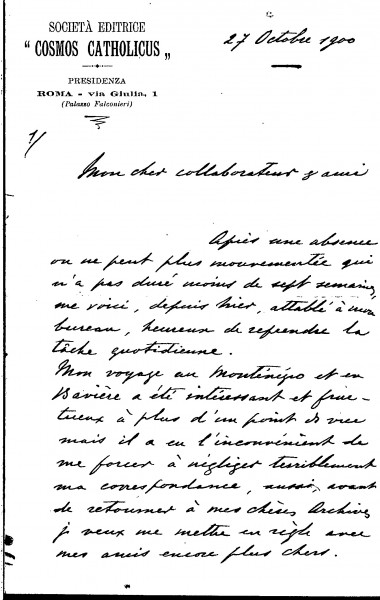 SOCIETÀ EDITRICE
" COSMOS CATHOLICUS „
PRESIDENZA
ROMA - via Giulia, 1
(Palazzo Falconieri)
27 Octobre 1900
1/
Mon cher collaborateur & ami
Après une absence
on ne peut plus mouvementée qui
n'a pas duré moins de sept semaines,
me voici, depuis hier, attablé à mon
bureau, heureux de reprendre la
tâche quotidienne.
Mon voyage au Monténégro et en
Bavière a été intéressant et fruc-
tueux à plus d'un point de vue
mais il a eu l'inconvénient de
me forcer à négliger terriblement
ma correspondance, aussi, avant
de retourner à mes chères Archives
je veux me mettre en règle avec
mes amis encore plus chers.